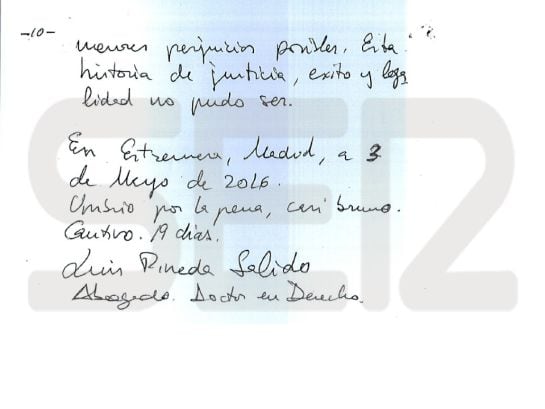 -10-
menores perjuicios posibles. Esta
historia de justicia, exito y lega
lidad no pudo ser.
En Estremera, Madrid, a 3
de Mayo de 2016.
Umbrío por la pena, casi bruno.
Cautivo. 19 días.
Luis Pineda Salido
Abogado. Doctor en Derecho.
SER